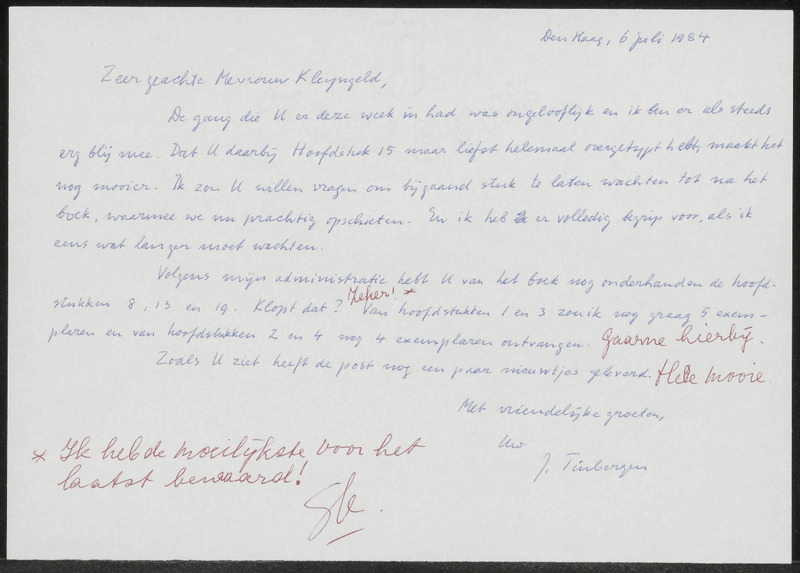 Den Haag, 6 juli 1984
Zeer geachte Mevrouw Kleyngeld,
De gang die U er deze week in had was ongelooflijk en ik ben er als steeds
erg blij mee. Dat U daarbij Hoofdstuk 15 maar liefst helemaal overgetypt hebt, maakt het
nog mooier. Ik zou U willen vragen om bijgaand stuk te laten wachten tot na het
boek, waarmee we nu prachtig opschieten. En ik heb er volledig begrip voor, als ik
eens wat langer moet wachten.
Volgens mijn administratie hebt U van het boek nog onderhanden de hoofd-
stukken 8, 13 en 19. Klopt dat? Zeker! * Van hoofdstukken 1 en 3 zou ik nog graag 5 exem-
plaren en van hoofdstukken 2 en 4 nog 4 exemplaren ontvangen. Gaarne hierbij.
Zoals U ziet heeft de post nog een paar nieuwtjes geleverd. Hele mooie.
Met vriendelijke groeten,
Uw
J. Tinbergen
* Ik heb de moeilijkste voor het
laatst bewaard!